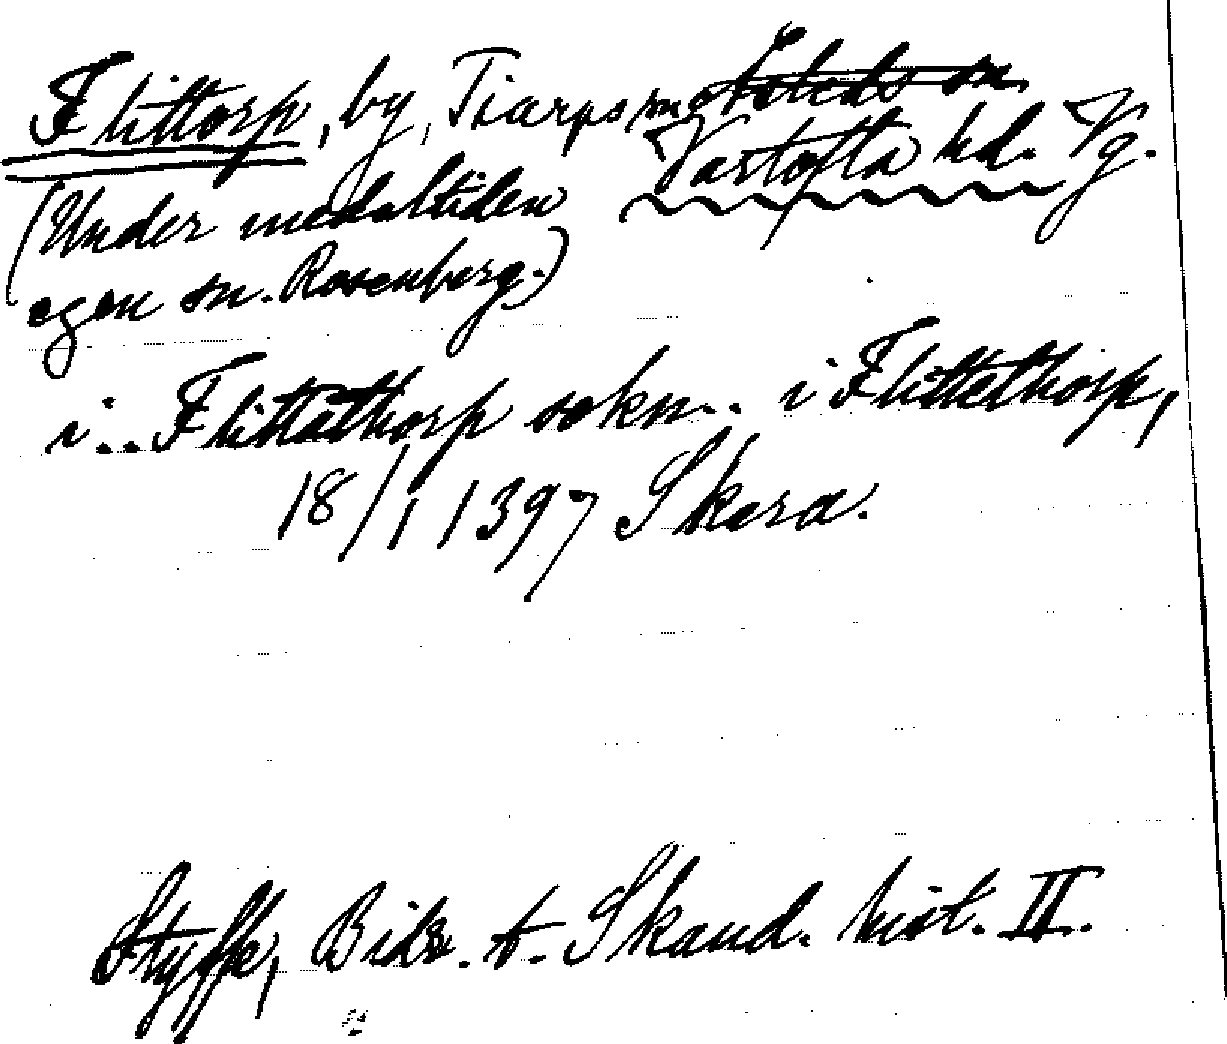 Flittorp, by, Tiarps sn
Vartofta hd. Vg.
(Under medeltiden
egen sn. Rosenberg.)
i .. Flittathorp sokn .. i Flittathorp,
18/1 1397 Skara.
Styffe, Bidr. t. Skand. hist. II.